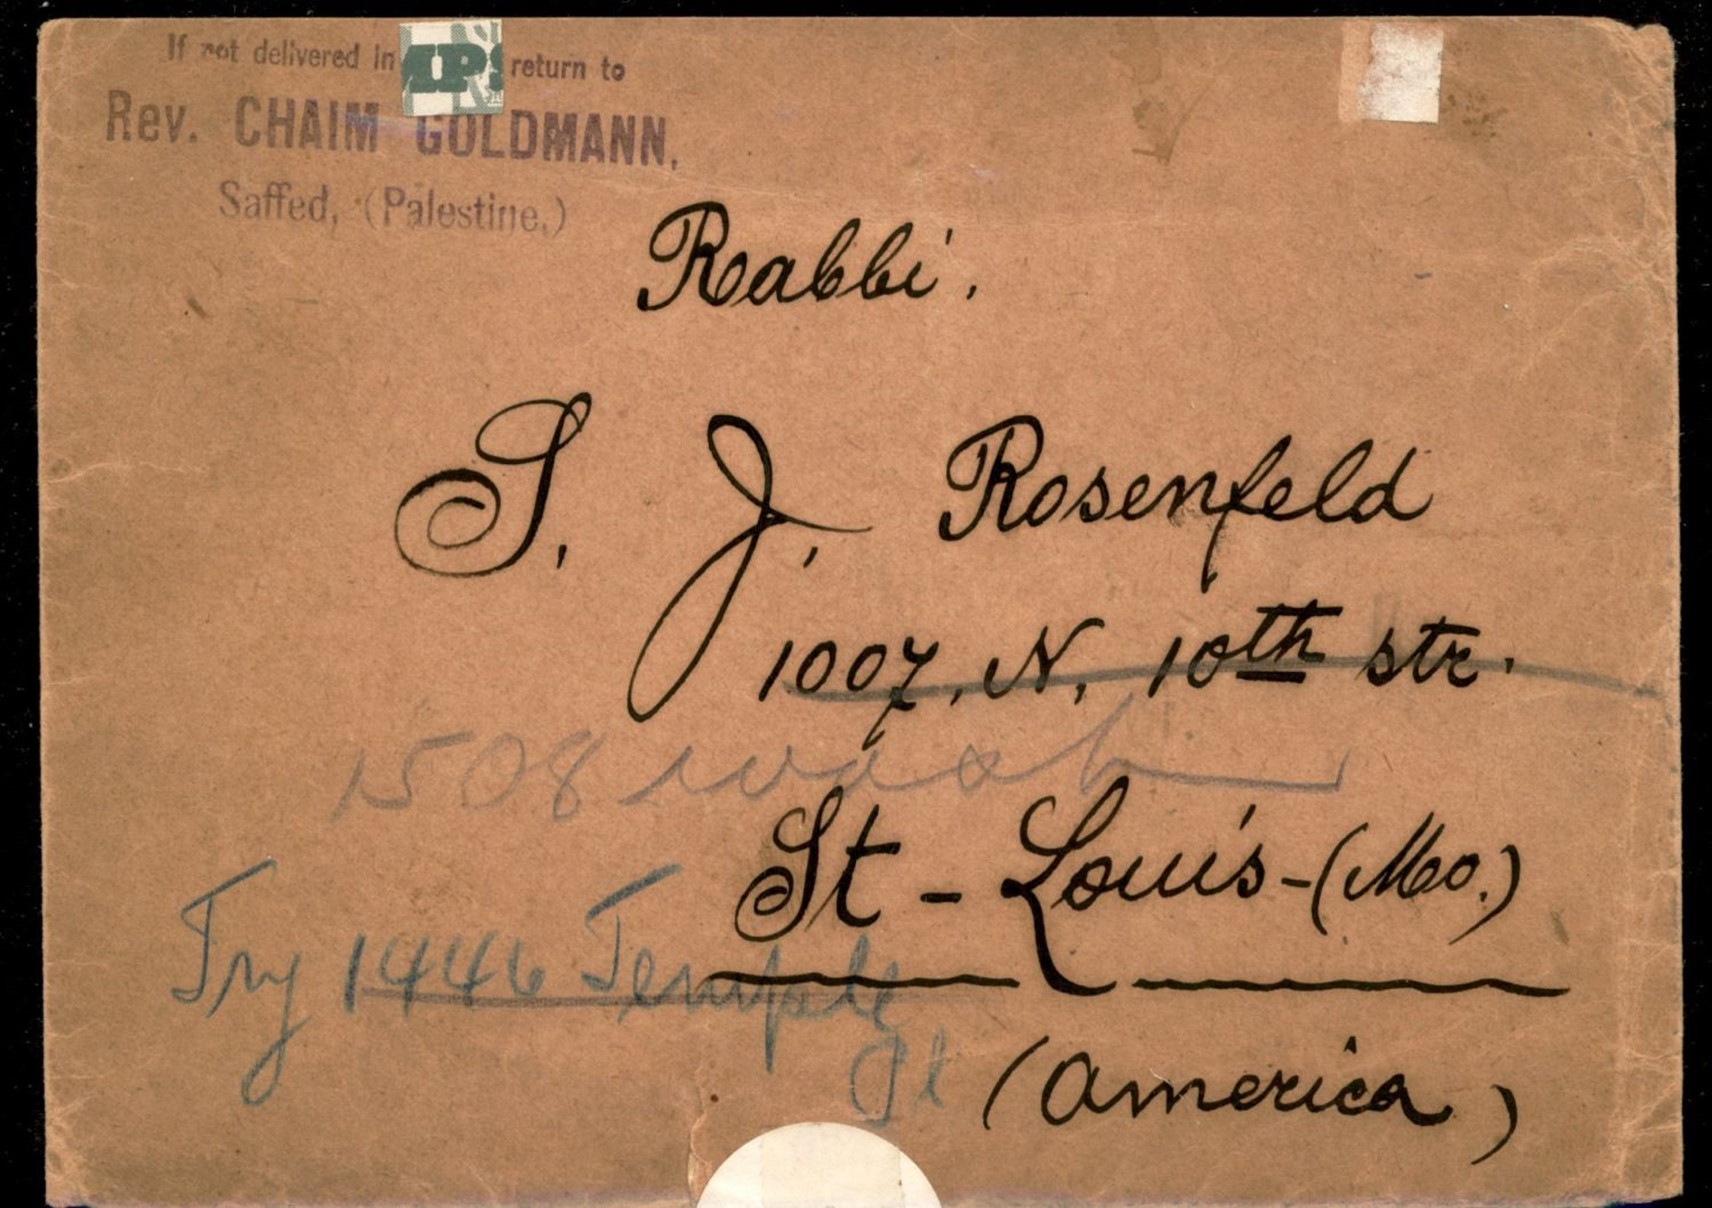 If not delivered in return to
Rev. CHAIM GOLDMANN,
Saffed, (Palestine.)
Rabbi.
S. J. Rosenfeld
1007, N, 10th str.
1508 wash
St - Louis - (Mo.)
Try 1446 Temple
Pl
(America)